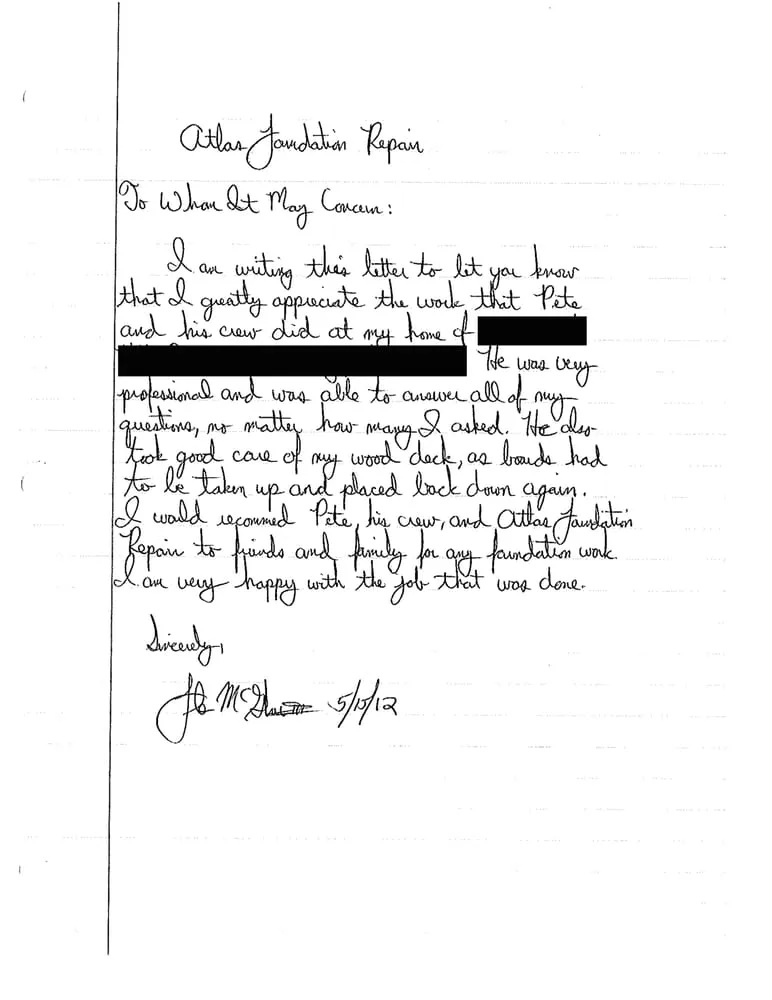 Atlas Foundation Repair
To Whom It May Concern:
I am writing this letter to let you know
that I greatly appreciate the work that Pete
and his crew did at my home of
He was very
professional and was able to answer all of my
questions, no matter how many I asked. He also
took good care of my wood deck, as boards had
to be taken up and placed back down again.
I would recommed Pete, his crew, and Atlas Foundation
Repair to friends and family for any foundation work.
I am very happy with the job that was done.
Sincerely,
5/15/12